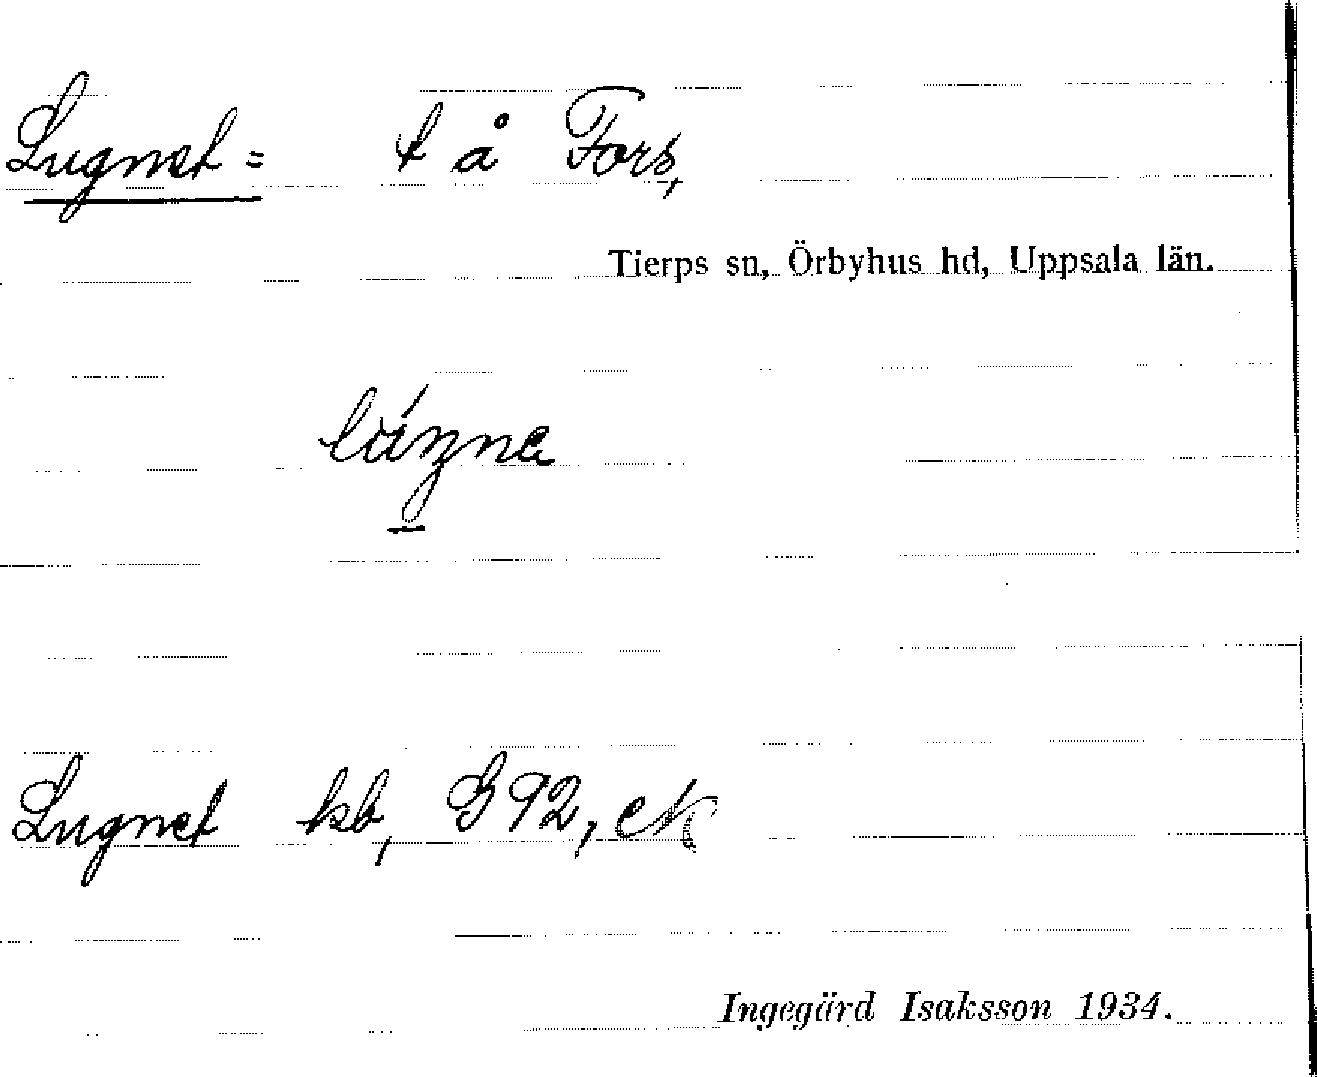 Lugnet = t å Fors,
Tierps sn, Örbyhus hd, Uppsala län.
Lugnet kb, G 92, ek
Ingegärd Isaksson 1934.